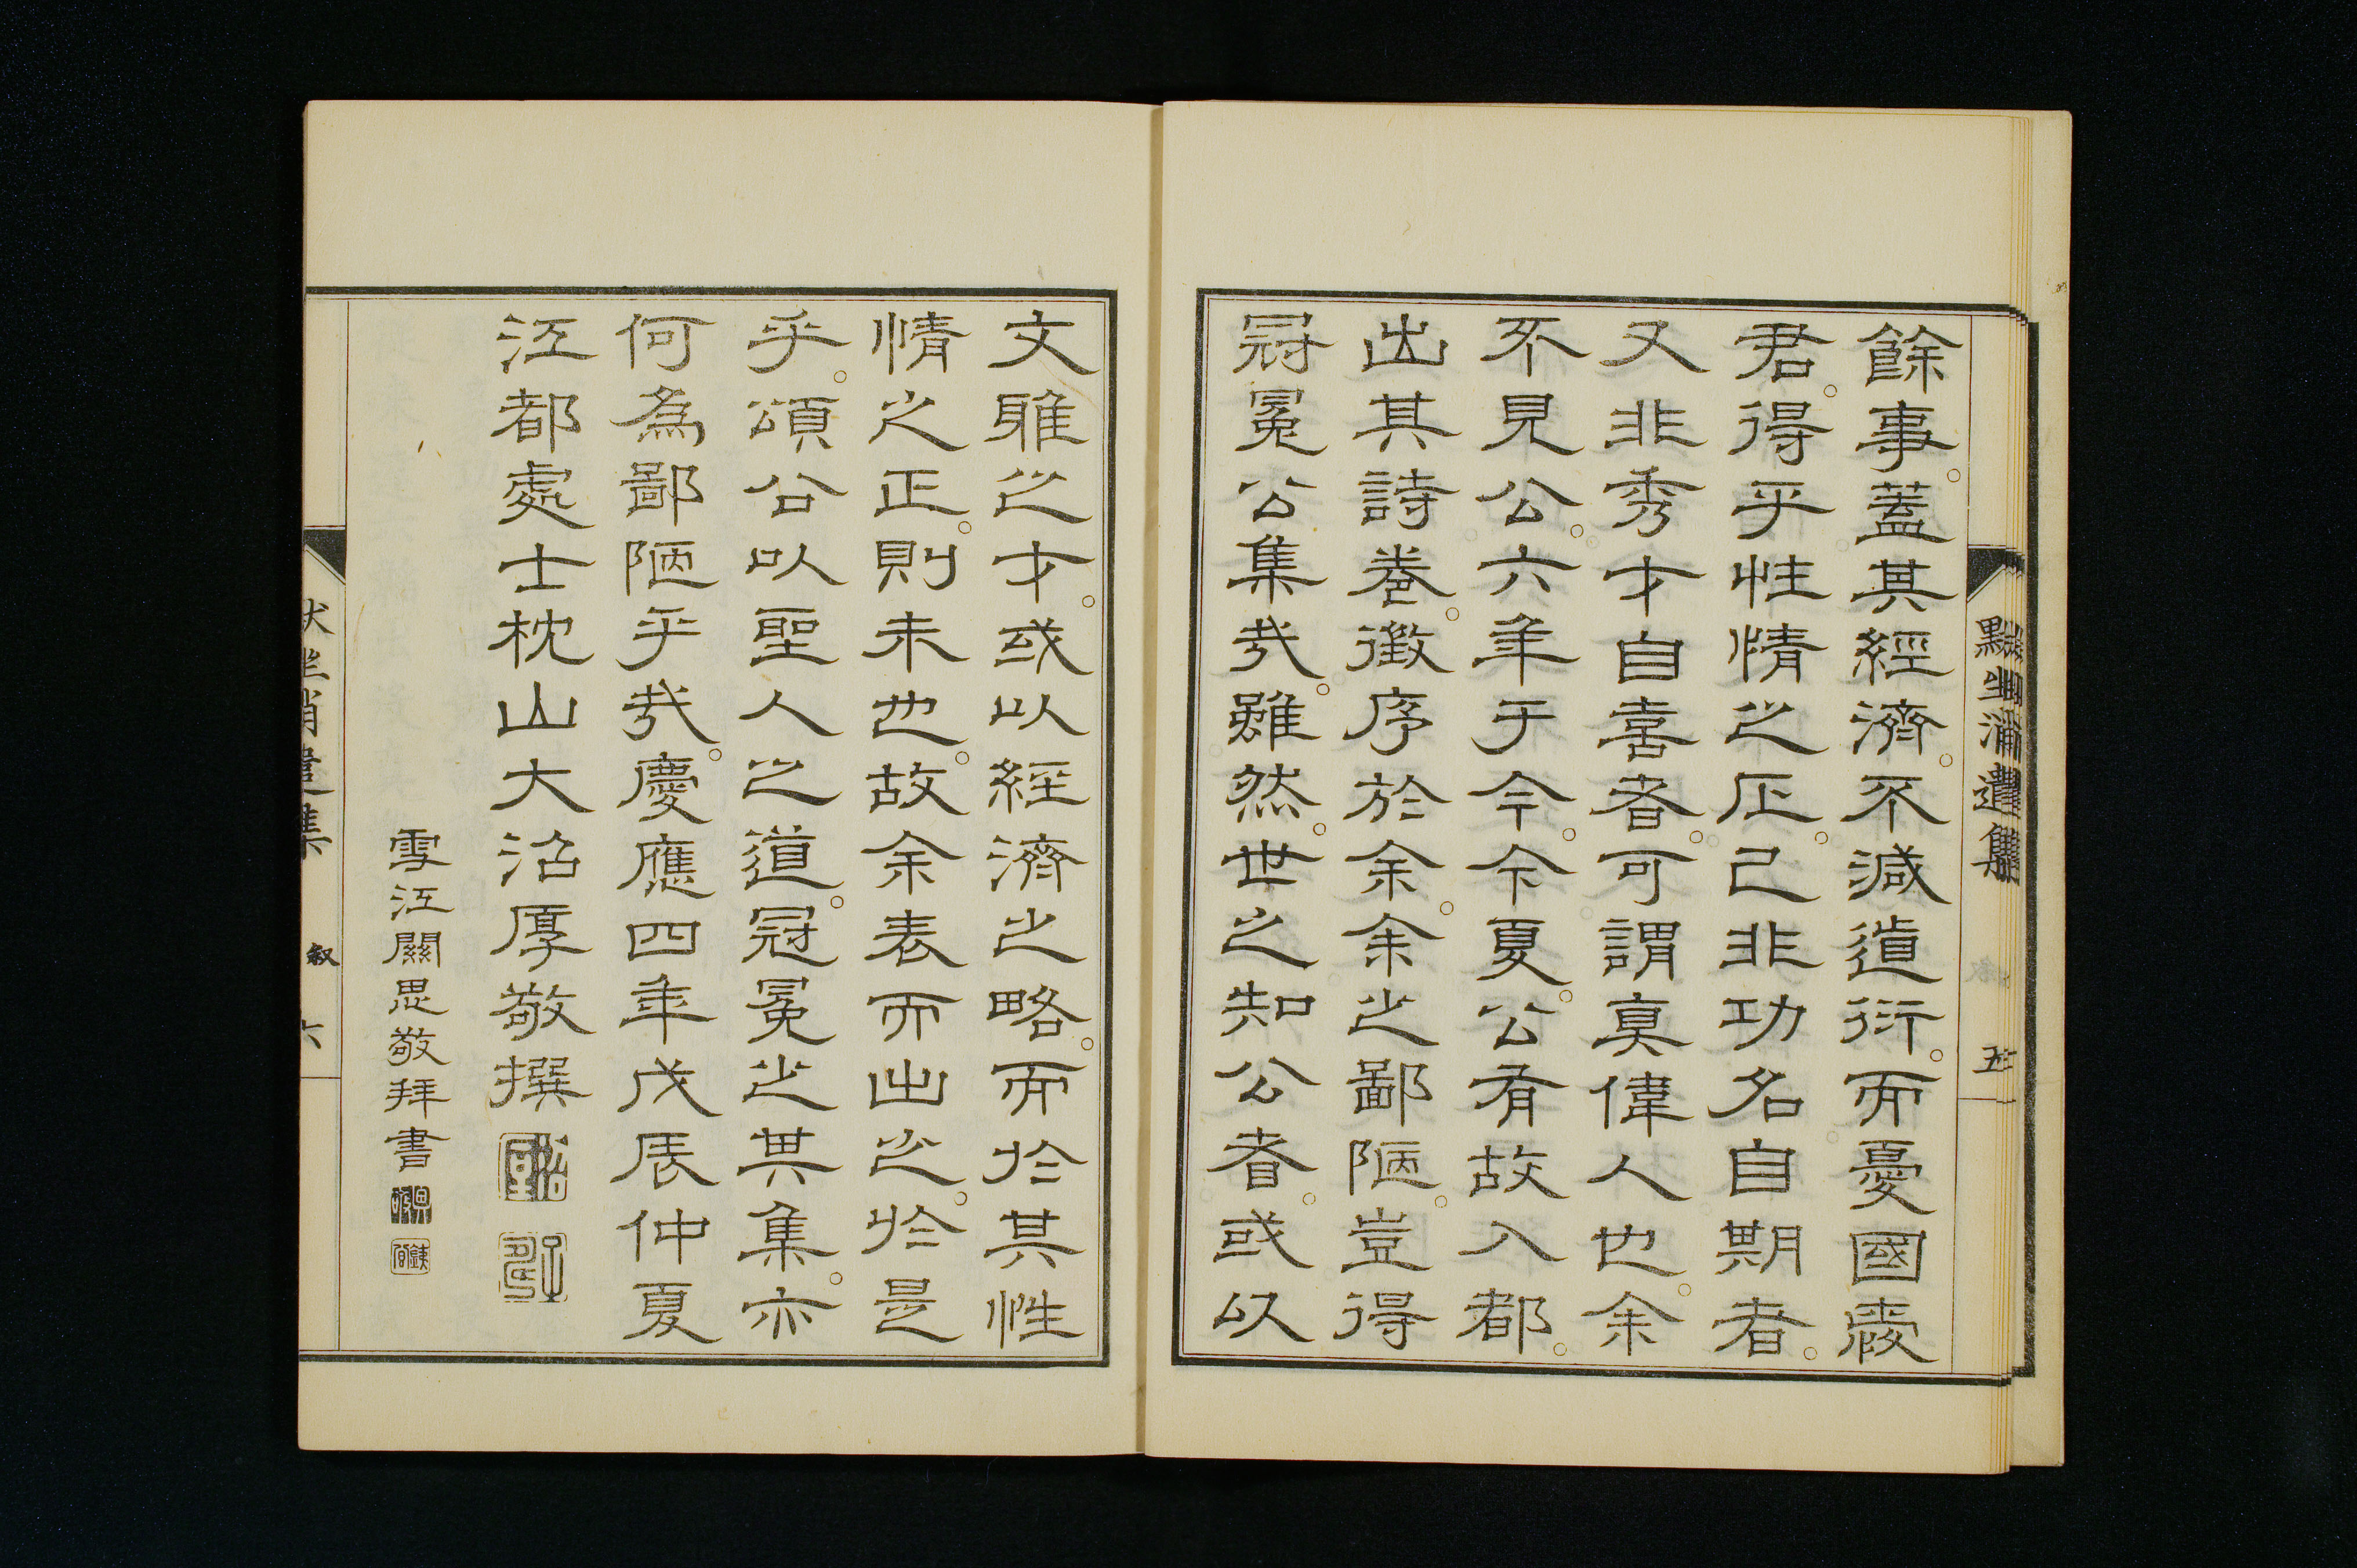 餘事。蓋其經濟。不減道衍。而憂國愛
君。得乎性情之正。己非功名自期者。
又非秀才自喜者。可謂眞偉人也。余
不見公。六年于今。今夏。公有故入都。
出其詩卷。徵序於余。余之鄙陋。豈得
冠冕公集哉。雖然。世之知公者。或以
文雅之才。或以經濟之略。而於其性
情之正。則未也。故余表而出之。於是
乎。頌公以聖人之道。冠冕之其集。亦
何為鄙陋乎哉。慶應四年戊辰仲夏
江都處士枕山大沼厚敬撰
雪江關思敬拜書
遺集
五
遺集
敘
六